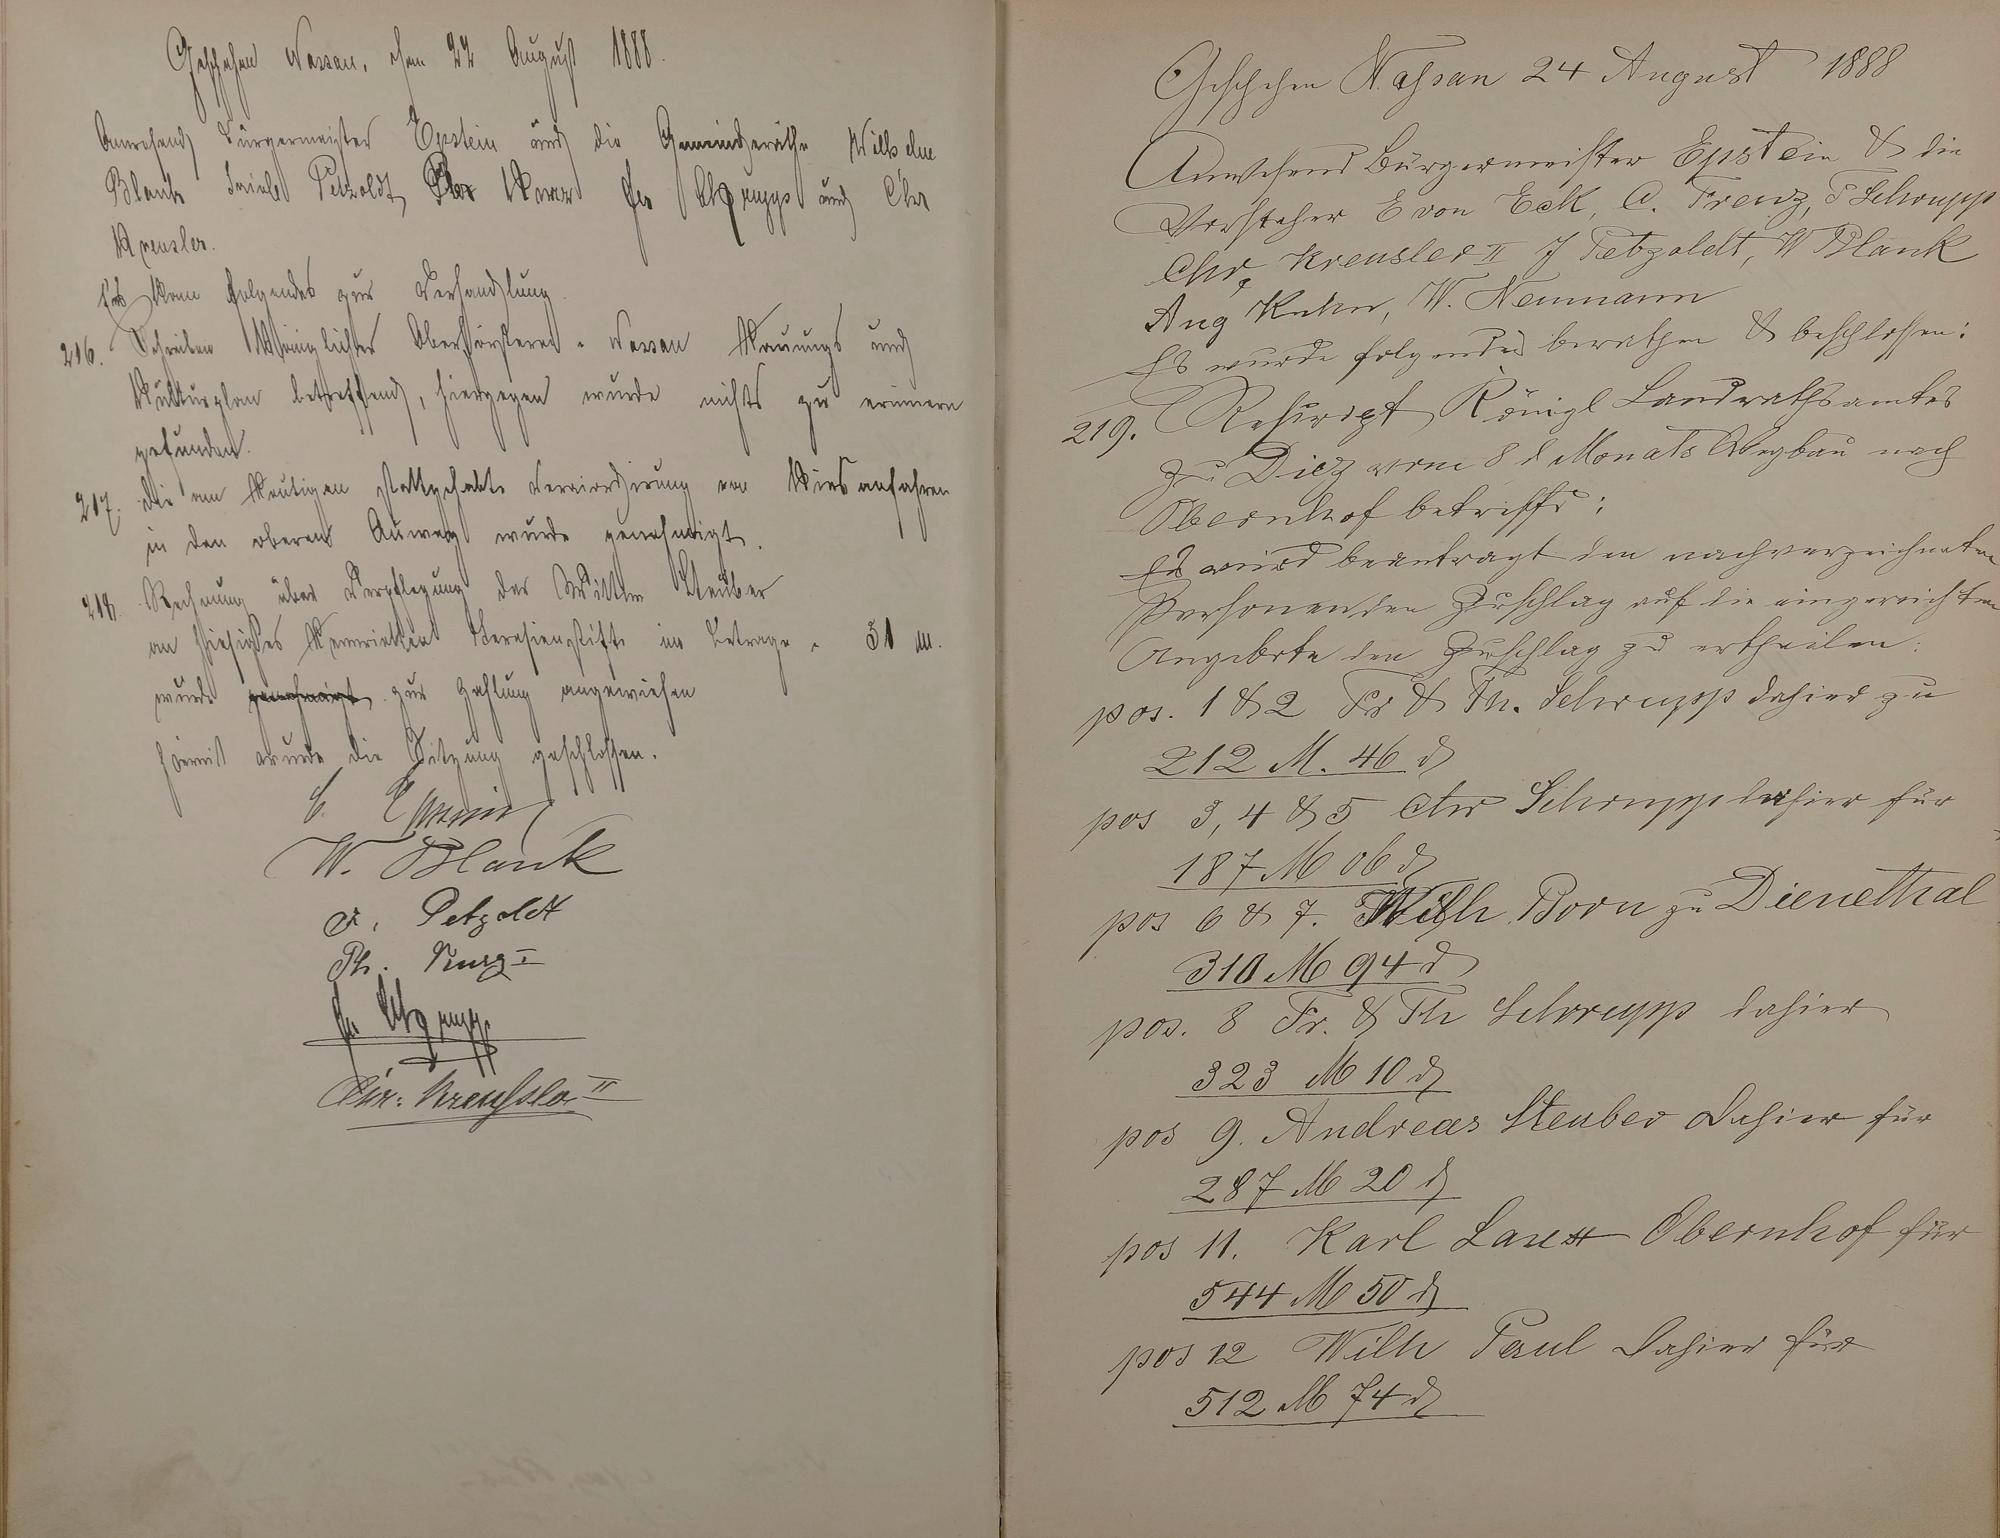 Geschehen Nassau, den 22 August 1888.
Anwesend Bürgermeister Epstein und die Gemeinderäthe Wilhelm
Blank Petzoldt, und Chr
Kreusler.
Es kam folgendes zur Verhandlung
216. Schreiben Königlicher Oberförsterei Nassau Hauungs und
Kulturplan betreffend, hiergegen wurde nichts zu erinnern
gefunden.
217. Die am heutigen stattgehabte Veraccordirung von Kies anfahren
in den oberen Auweg wurde genehmigt.
218. Rechnung über Verpflegung der Wittwe Steuber
an hiesiges Theresienstift im Betrage v. 51 M.
wurde genehmigt zur Zahlung angewiesen
Hiermit wurde die Sitzung geschlossen.
W. Blank
Petzoldt
Ph. Kurz I
Chr. Kreußler II
Geschehen Nassau 24 August 1888
Anwesend Bürgermeister Epstein & die
Vorsteher E von Eck, C. Trenz, F Schrupp
Chr Kreusler II J Petzoldt, W Blank
Aug Kuhn, W. Neumann
Es wurde folgendes berathen & beschlossen:
219. Rescript Königl Landrathsamtes
zu Diez vom 8 d Monats Wegbau nach
Obernhof betreffd:
Es wird beantragt den nachverzeichneten
Personen den Zuschlag auf die eingereichten
Angebote den Zuschlag zu ertheilen.
pos. 1 & 2 Fr & Th. Schrupp dahier zu
212 M. 46 d
pos 3, 4 & 5 Chr Schrupp dahier für
187 M 06 d
pos 6 & 7. Wilh. Born zu Dienethal
310 M 94 d
pos. 8 Fr. & Th Schrupp dahier
323 M 10 d
pos 9. Andreas Steuber dahier für
287 M 20 d
pos 11. Karl Obernhof für
544 M 50 d
pos 12 Wilh Paul dahier für
512 M 74 d